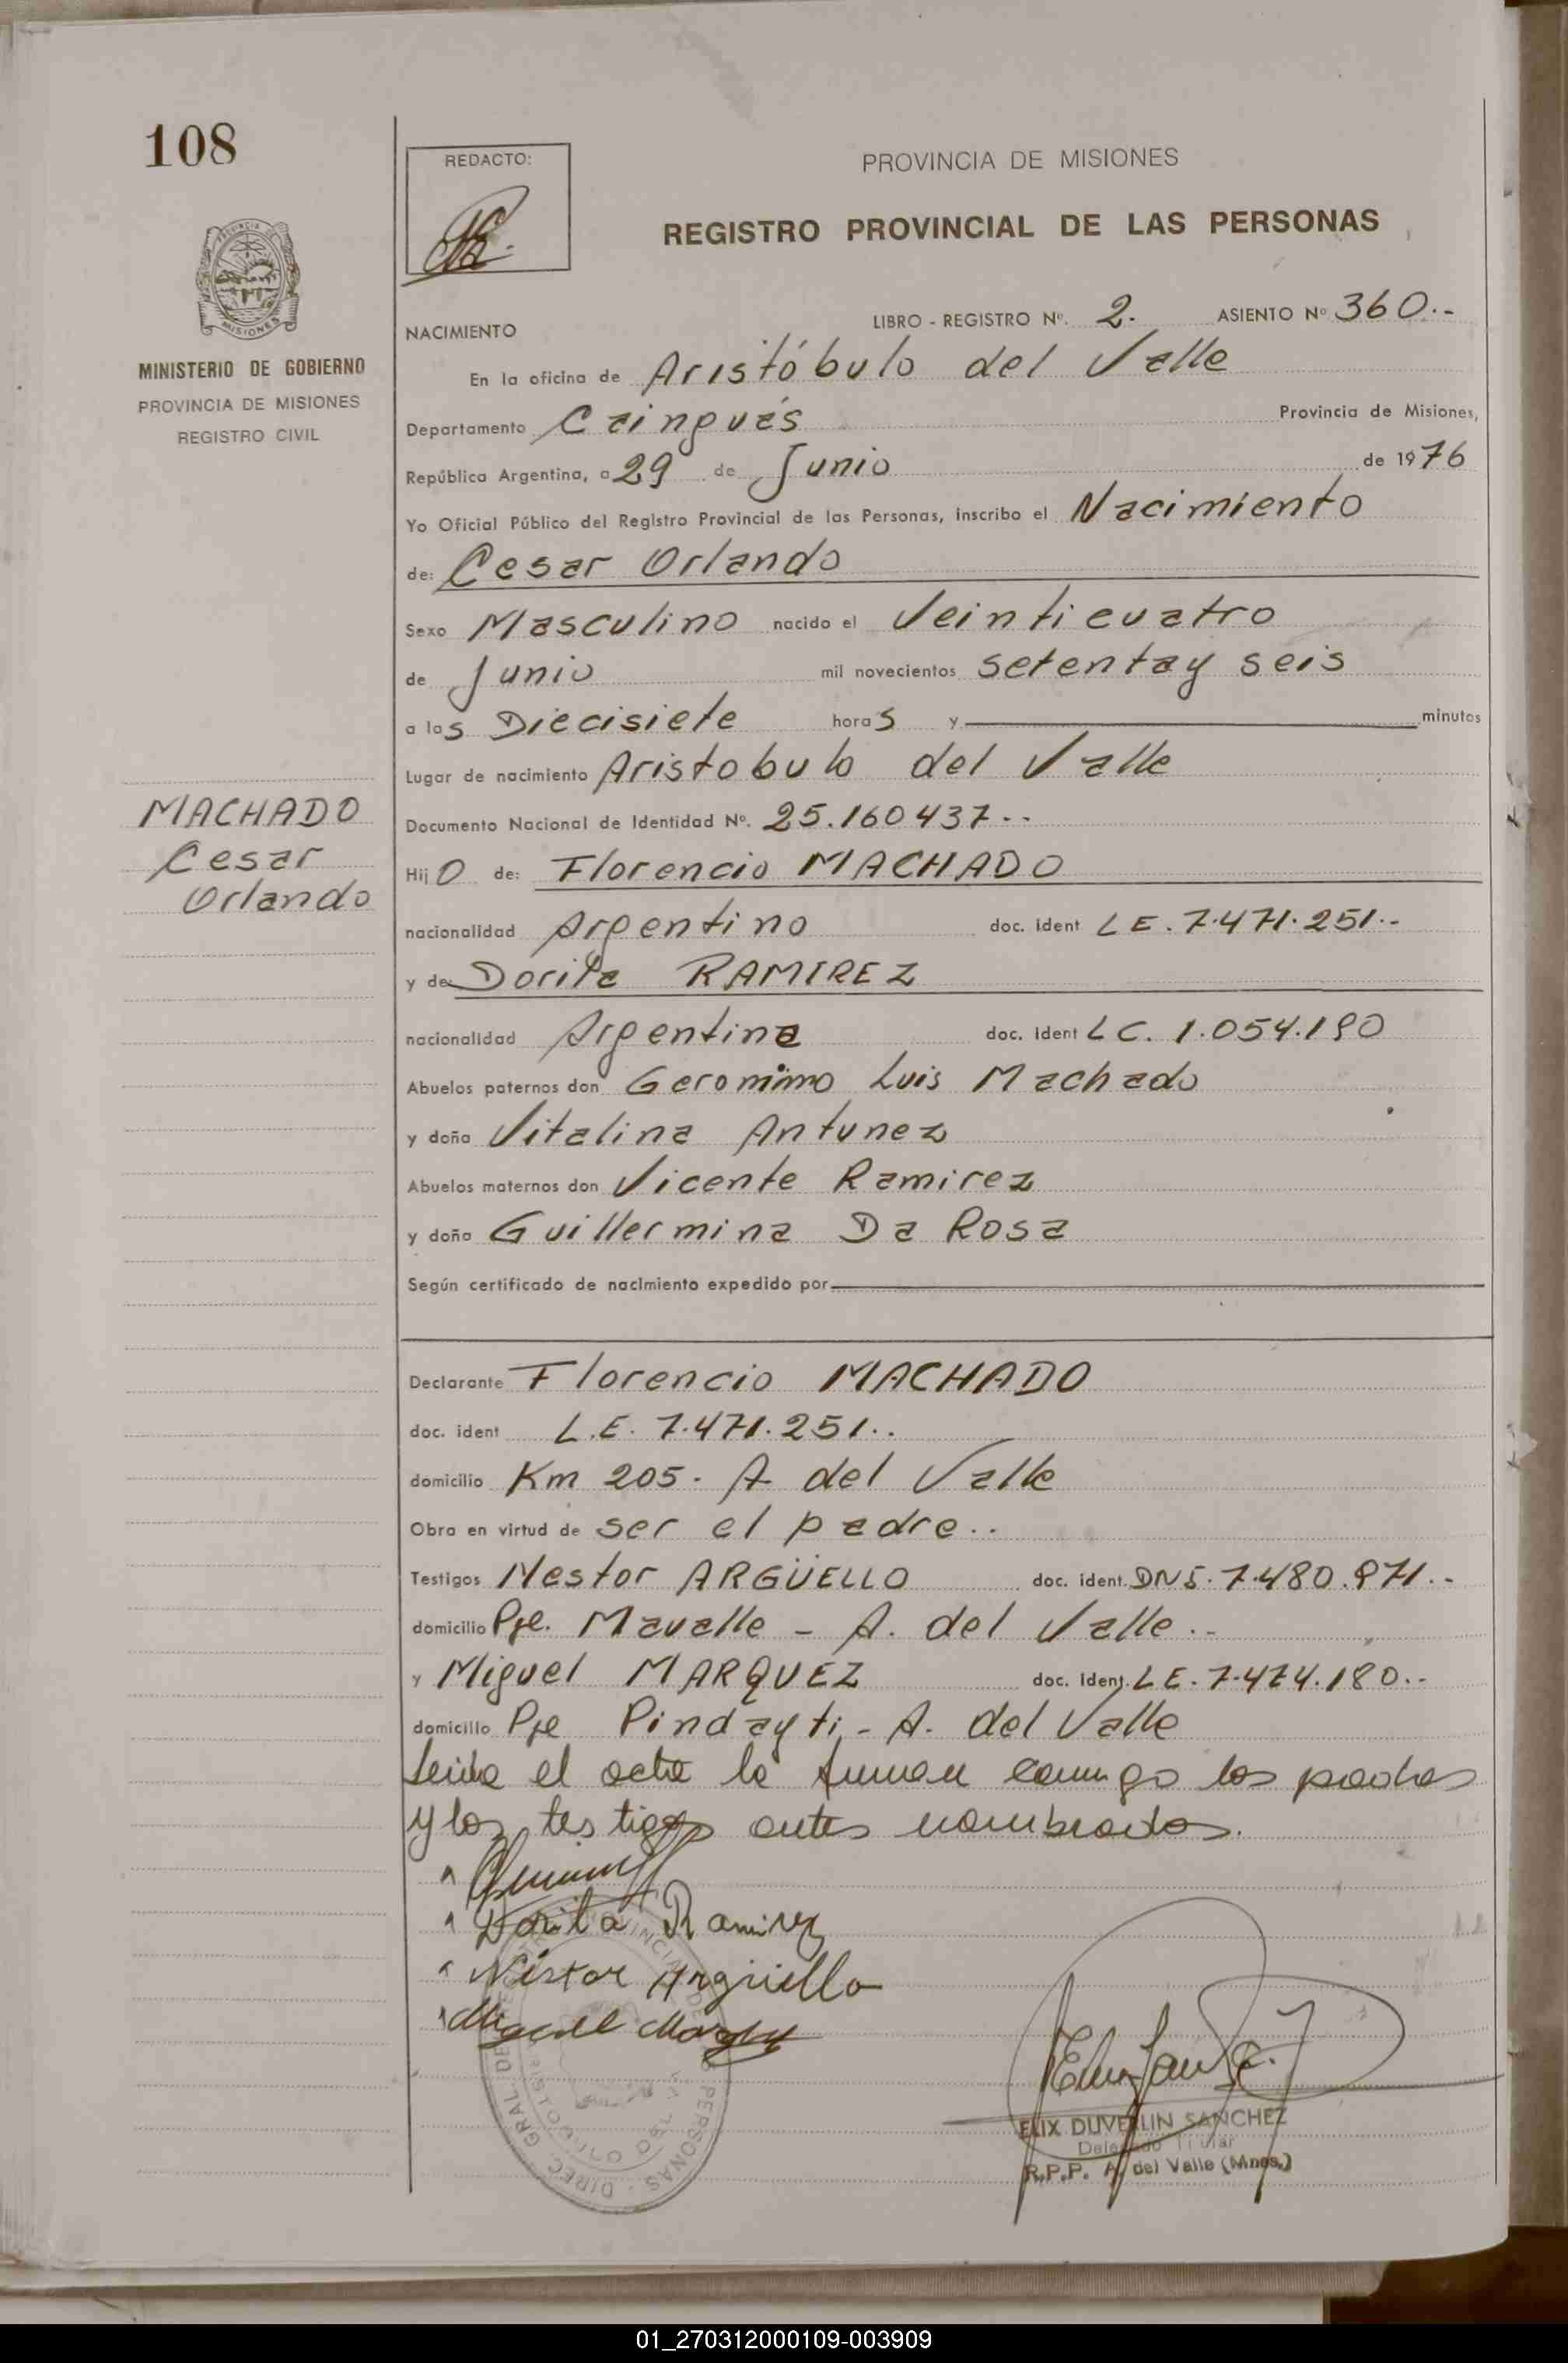 108
REDACTO:
PROVINCIA DE MISIONES
REGISTRO PROVINCIAL DE LAS PERSONAS
MISIONES
MINISTERIO DE GOBIERNO
PROVINCIA DE MISIONES
REGISTRO CIVIL
NACIMIENTO LIBRO - REGISTRO Nº. 2. ASIENTO Nº 360.-
En la oficina de Aristóbulo del Valle
Departamento Cainguás Provincia de Misiones,
República Argentina, a 29 de Junio de 1976
Yo Oficial Público del Registro Provincial de las Personas, inscribo el Nacimiento
de: Cesar Orlando
Sexo Masculino nacido el Veinticuatro
de Junio mil novecientos setentay seis
a las Diecisiete horas y minutos
Lugar de nacimiento Aristobulo del Valle
Documento Nacional de Identidad Nº. 25.160437--
MACHADO
Cesar
Orlando
Hijo de: Florencio MACHADO
nacionalidad Argentino doc. ident LE. 7.471.251.-
y de: Dorita RAMIREZ
nacionalidad Argentina doc. ident LC. 1.054.190
Abuelos paternos don Geronimo Luis Machado
y doña Vitalina Antunez
Abuelos maternos don Vicente Ramirez
y doña Guillermina Da Rosa
Según certificado de nacimiento expedido por
Declarante Florencio MACHADO
doc. ident L.E. 7.471.251..
domicilio Km 205. A del Valle
Obra en virtud de ser el padre..
Testigos Nestor ARGÜELLO doc. ident. DNI. 7.480.971.-
domicilio Pje. Mavalle - A. del Valle.-
y Miguel MARQUEZ doc. ident. LE. 7.474.180.-
domicilio Pje Pindayti - A. del Valle
Leida el acta la firman conmigo los padres
y los testigos antes nombrados.
Dorita Ramirez
Néstor Argüello
Miguel Marquez
ELIX DUVERLIN SANCHEZ
Delegado Titular
R.P.P. A. del Valle (Mnes.)
01_270312000109-003909